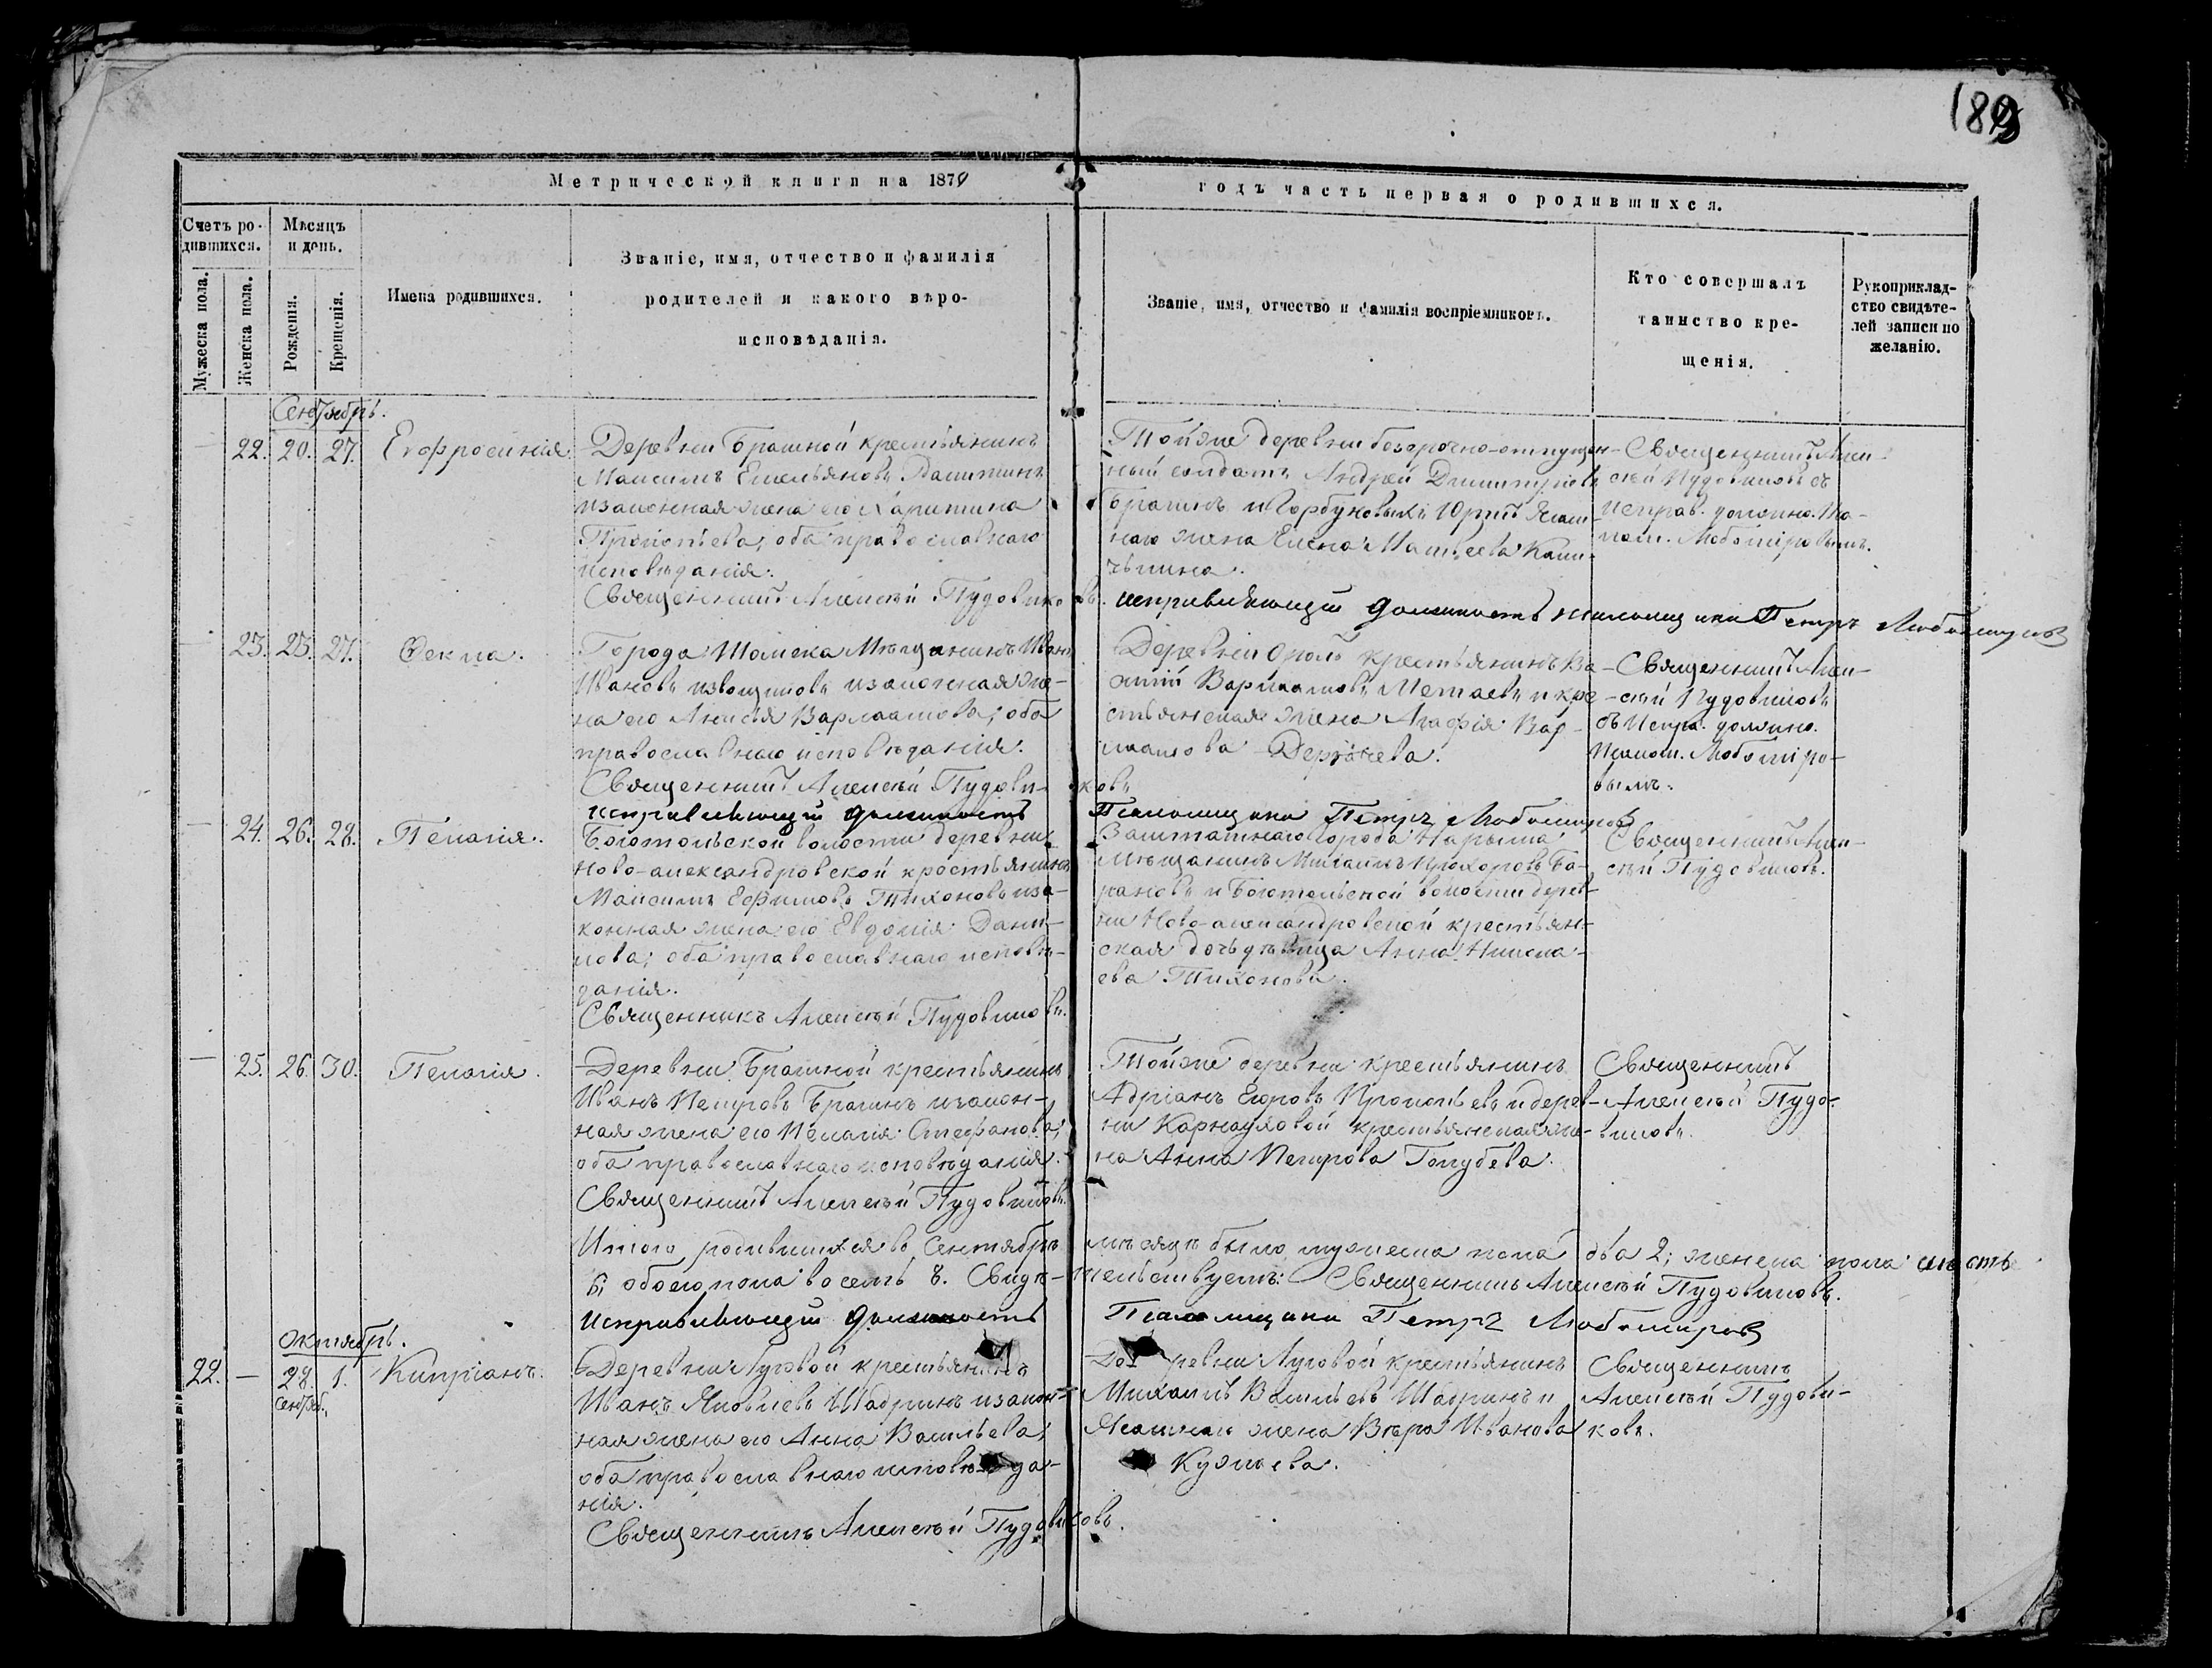 189
Метрической книги на 1879
годъ часть первая о родившихся.
Счетъ ро-
дившихся.
Мѣсяцъ
и день.
Мужеска пола.
Женска пола.
Рожденія.
Крещенія.
Имена родившихся.
Званіе, имя, отчество и фамилія
родителей и какого вѣро-
исповѣданія.
Званіе, имя, отчество и фамилія воспріемниковъ.
Кто совершалъ
таинство кре-
щенія.
Рукоприклад-
ство свидѣте-
лей записи по
желанію.
Сентябрь.
22. 20. 27. Евфросинія
Деревни Брагиной крестьянинъ
Максимъ Емельяновъ
изаконная жена его Харитина
Прокопьева; оба православнаго
исповѣданія.
Священникъ Алексѣй Пудовиковъ.
Тойже деревни безсрочно-отпущен-
ный солдатъ Андрей Димитріевъ
Брагинъ и Горбуновыхъ Юртъ Ясаш-
наго жена Елена Матвеева
Священникъ Алек-
сѣй Пудовиковъ съ
Исправ. должно. Пса-
лом. Любомировымъ.
исправляющій должность псаломщика Петръ Любомировъ
23. 23. 27. Фекла.
Города Томска Мѣщанинъ Иванъ
Ивановъ Извощиковъ изаконная же-
на его Анисья Варлаамова; оба
православнаго исповѣданія.
Священникъ Алексѣй Пудовиковъ
Деревни крестьянинъ Ва-
Варлаамовъ и кре-
стьянская жена Агафія Вар-
лаамова
Священникъ Алек-
сѣй Пудовиковъ
съ Испра. должно.
Псалом. Любоміро-
вымъ.
исправляющій должность Псаломщика Петръ Любомировъ
24. 26. 28. Пелагія.
Боготольской волости деревни
Ново-александровской крестьянинъ
Максимъ Ефимовъ Тихоновъ иза-
конная жена его Евдокія Дани-
лова; оба православнаго исповѣ-
данія.
Священникъ Алексѣй Пудовиковъ.
Заштатнаго города Нарыма
Мѣщанинъ Михаилъ Прохоровъ Ба-
рановъ и Боготольской волости дерев-
ни Ново-александровской крестьян-
ская дочь дѣвица Анна Никола-
ева Тихонова.
Священникъ Алек-
сѣй Пудовиковъ.
25. 26. 30. Пелагія.
Деревни Брагиной крестьянинъ
Иванъ Петровъ Брагинъ изакон-
ная жена его Пелагія Стефанова;
оба православнаго исповѣданія.
Священникъ Алексѣй Пудовиковъ.
Тойже деревни крестьянинъ
Адріанъ Егоровъ Прокопьевъ и дерев-
ни Карнауховой крестьянская же-
на Анна Петрова Голубева.
Священникъ
Алексѣй Пудо-
виковъ.
Итого родившихся въ Сентябрѣ мѣсяцѣ было мужеска пола два 2; женска пола шесть
6; обоего пола восемь 8. Свидѣтельствуетъ: Священникъ Алексѣй Пудовиковъ.
Исправляющій должность Псаломщика Петръ Любомировъ
Октябрь.
22. — 28. 1. Кипріанъ.
Сентяб.
Деревни Луговой крестьянинъ
Иванъ Яковлевъ Шадринъ изакон-
ная жена его Анна Васильева;
оба православнаго исповѣда-
нія.
Священникъ Алексѣй Пудовиковъ.
Деревни Луговой крестьянинъ
Михаилъ Васильевъ Шадринъ и
Ясашнаго жена Вѣра Иванова
Священникъ
Алексѣй Пудови-
ковъ.